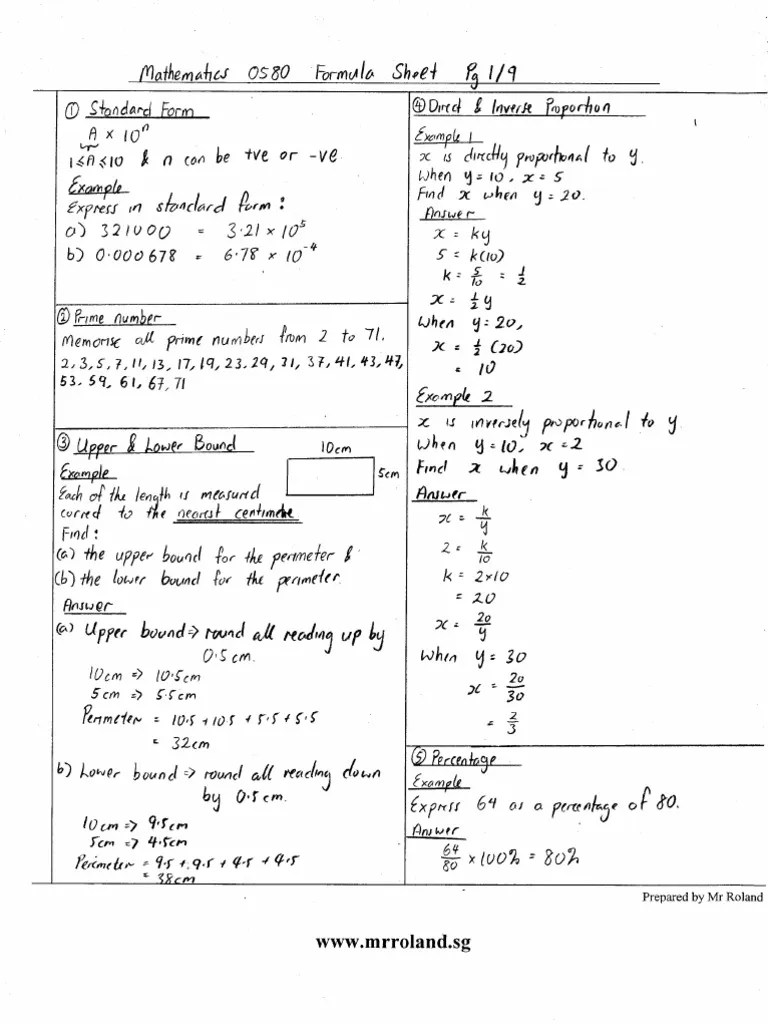 Mathematics 0580 Formula Sheet Pg 1/9
① Standard Form
A x 10ⁿ
1≤A≤10 & n can be +ve or -ve
Example
Express in standard form :
a) 321000 = 3.21 x 10⁵
b) 0.000678 = 6.78 x 10⁻⁴
② Prime number
Memorise all prime numbers from 2 to 71.
2,3,5,7,11,13,17,19,23,29,31,37,41,43,47,
53,59,61,67,71
③ Upper & Lower Bound
10cm
5cm
Example
Each of the length is measured
correct to the nearest centimetre
Find :
(a) the upper bound for the perimeter &
(b) the lower bound for the perimeter.
Answer
(a) Upper bound => round all reading up by
0.5 cm.
10cm => 10.5cm
5cm => 5.5cm
Perimeter = 10.5 + 10.5 + 5.5 + 5.5
= 32cm
b) Lower bound => round all reading down
by 0.5cm.
10cm => 9.5cm
5cm => 4.5cm
Perimeter = 9.5 + 9.5 + 4.5 + 4.5
= 38cm
④ Direct & Inverse Proportion
Example 1
x is directly proportional to y.
When y = 10, x = 5
Find x when y = 20.
Answer
x = ky
5 = k(10)
k = 5/10 = 1/2
x = 1/2 y
When y = 20,
x = 1/2 (20)
= 10
Example 2
x is inversely proportional to y.
When y = 10, x = 2
Find x when y = 30
Answer
x = k/y
2 = k/10
k = 2x10
= 20
x = 20/y
When y = 30
x = 20/30
= 2/3
⑤ Percentage
Example
Express 64 as a percentage of 80.
Answer
64/80 x 100% = 80%
Prepared by Mr Roland
www.mrroland.sg